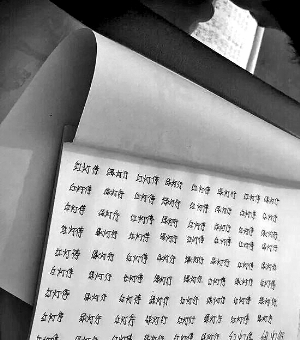 红灯停 绿灯行 红灯停 绿灯行 红灯停 绿灯行 红灯停 绿灯行
红灯停 绿灯行 红灯停 绿灯行 红灯停 绿灯行 红灯停 绿灯行
红灯停 绿灯行 红灯停 绿灯行 红灯停 绿灯行 红灯停 绿灯行
红灯停 绿灯行 红灯停 绿灯行 红灯停 绿灯行 红灯停 绿灯行
红灯停 绿灯行 红灯停 绿灯行 红灯停 绿灯行 红灯停 绿灯行
红灯停 绿灯行 红灯停 绿灯行 红灯停 绿灯行 红灯停 绿灯行
红灯停 绿灯行 红灯停 绿灯行 红灯停 绿灯行 红灯停 绿灯行
红灯停 绿灯行 红灯停 绿灯行 红灯停 绿灯行 红灯停 绿灯行
红灯停 绿灯行 红灯停 绿灯行 红灯停 绿灯行 红灯停 绿灯行